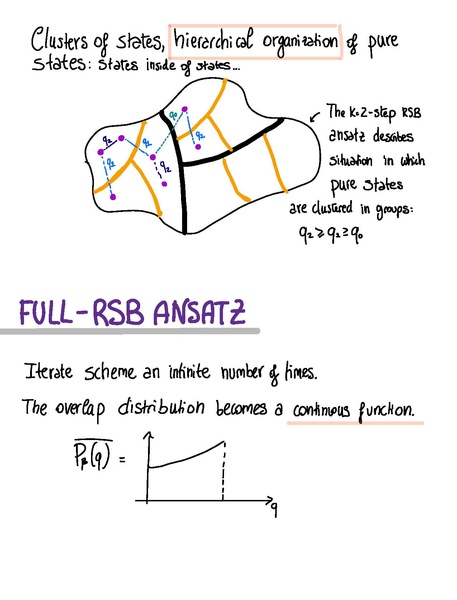 Clusters of states, hierarchical organization of pure
states: states inside of states...
q2
q2
q1
q0
q2
q2
The K=2-step RSB
ansatz describes
situation in which
pure states
are clustered in groups:
q2 ≥ q1 ≥ q0
FULL-RSB ANSATZ
Iterate scheme an infinite number of times.
The overlap distribution becomes a continuous function.
Pβ(q) =
q